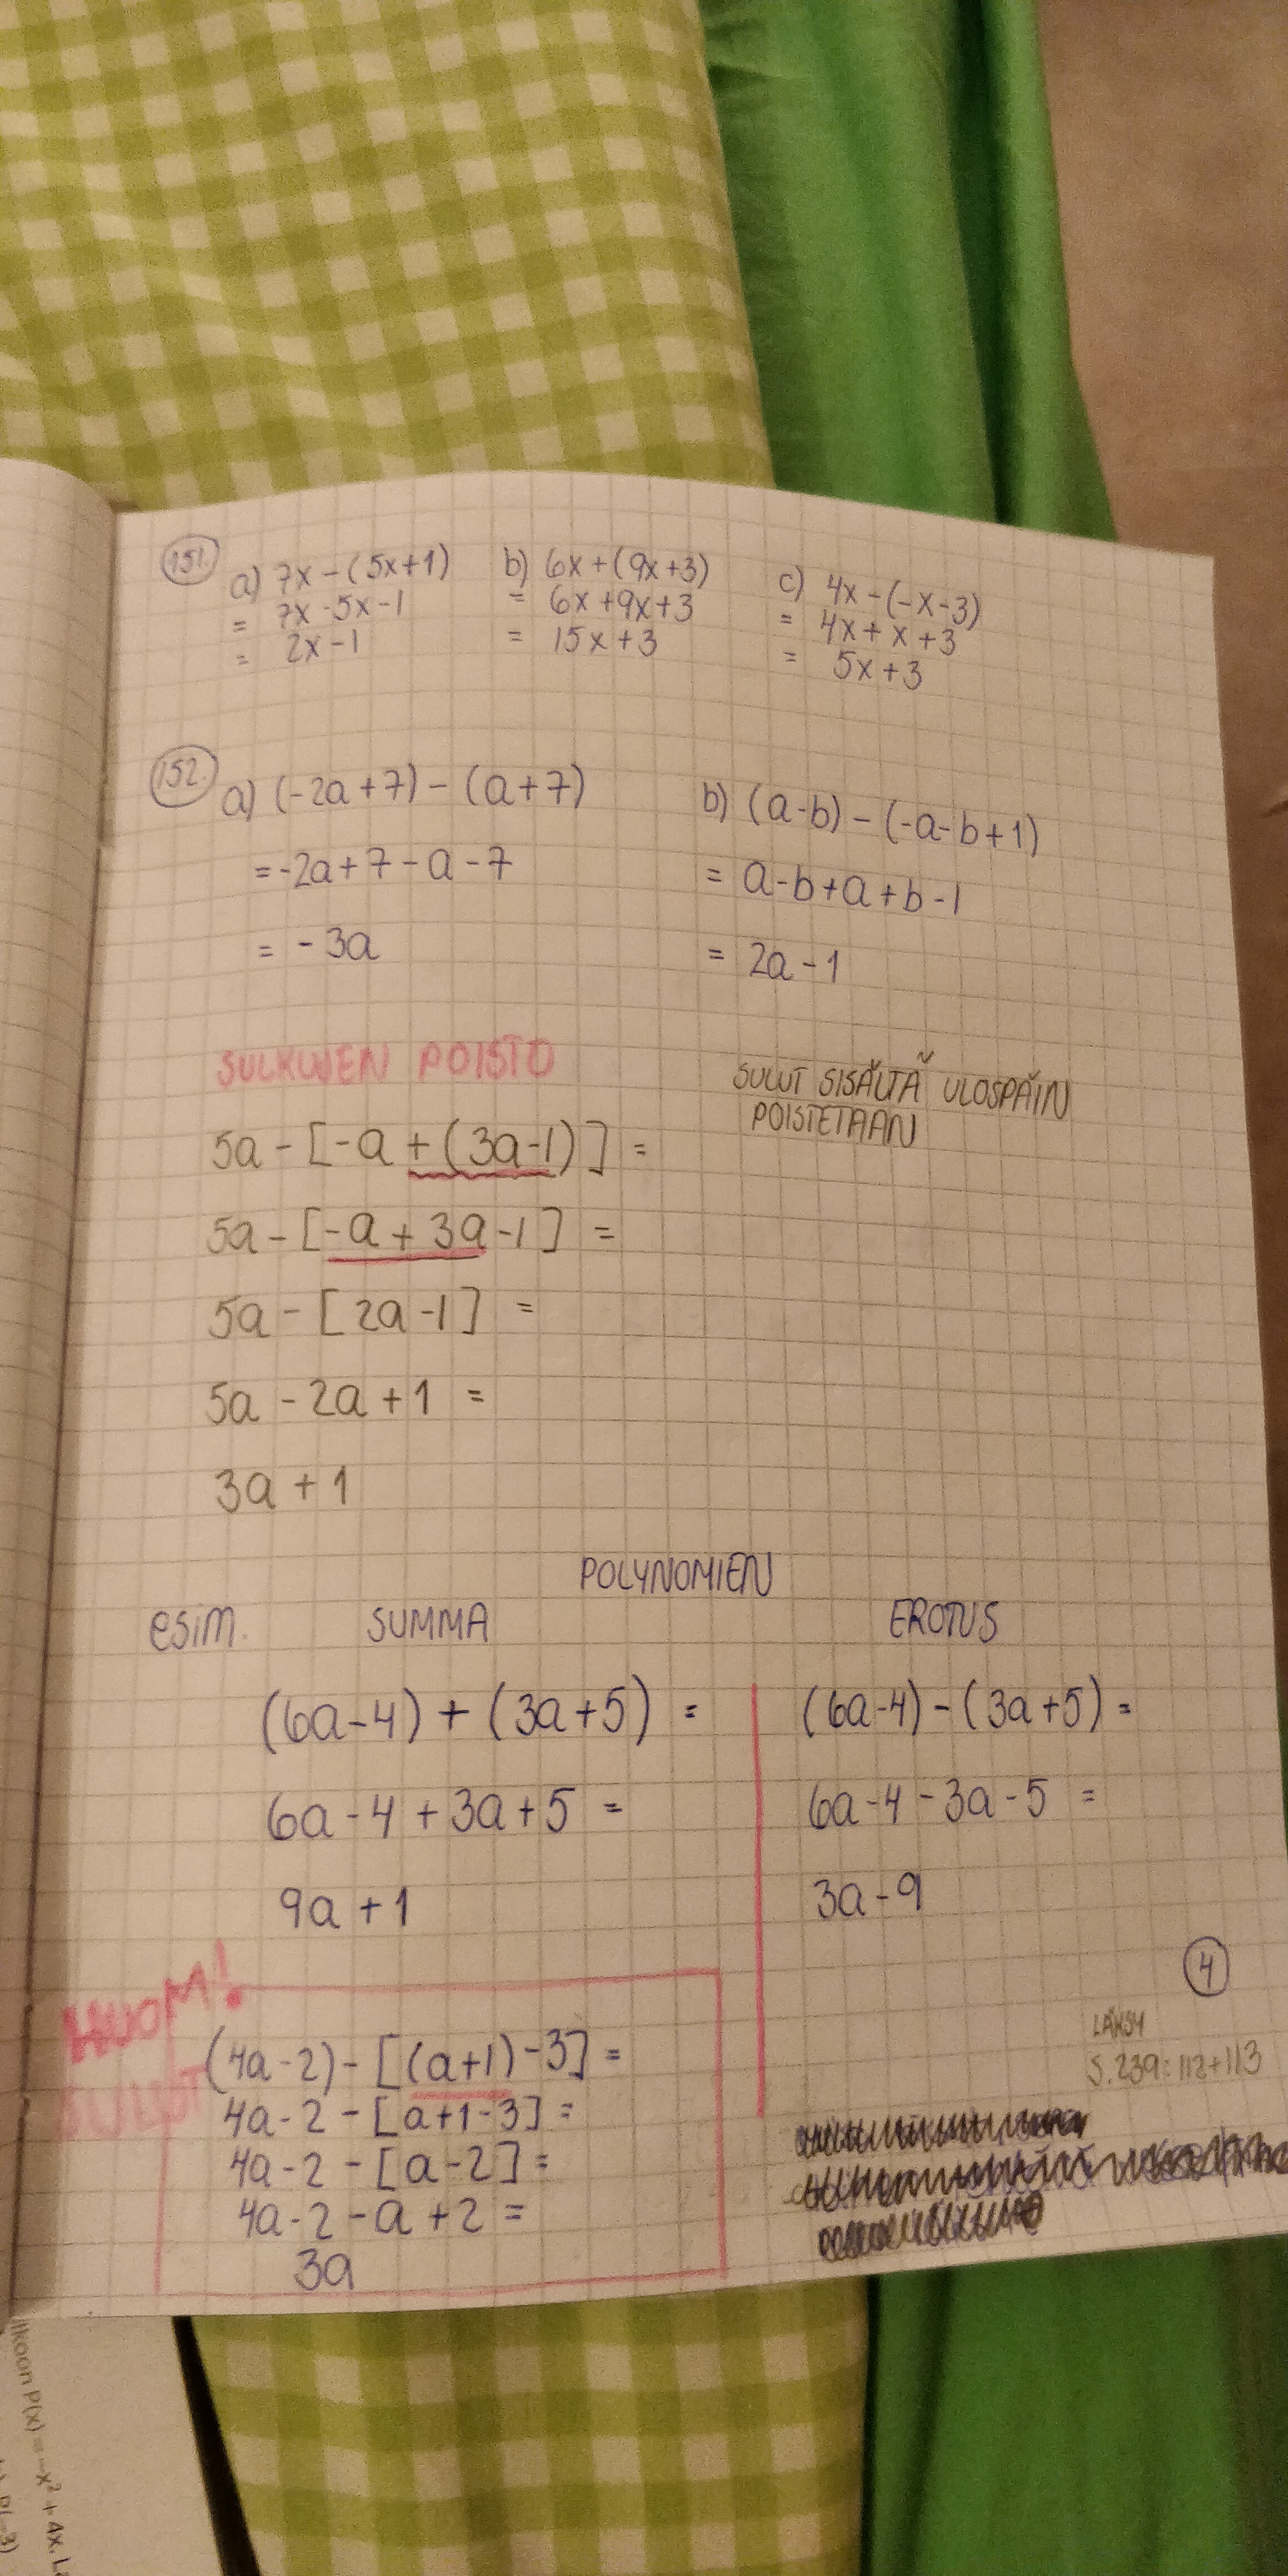 151. a) 7x-(5x+1) b) 6x+(9x+3) c) 4x-(-x-3)
= 7x-5x-1 = 6x+9x+3 = 4x+x+3
= 2x-1 = 15x+3 = 5x+3
152. a) (-2a+7)-(a+7) b) (a-b)-(-a-b+1)
=-2a+7-a-7 = a-b+a+b-1
= -3a = 2a-1
SULKUJEN POISTO
SULUT SISÄLTÄ ULOSPÄIN
POISTETAAN
5a-[-a+(3a-1)] =
5a-[-a+3a-1] =
5a-[2a-1] =
5a-2a+1 =
3a+1
POLYNOMIEN
esim. SUMMA EROTUS
(6a-4)+(3a+5) = (6a-4)-(3a+5) =
6a-4+3a+5 = 6a-4-3a-5 =
9a+1 3a-9
HUOM!
SULUT
(4a-2)-[(a+1)-3] =
4a-2-[a+1-3] =
4a-2-[a-2] =
4a-2-a+2 =
3a
4
LÄKSY
S.239: 112+113
P(x) = -x² + 4x.